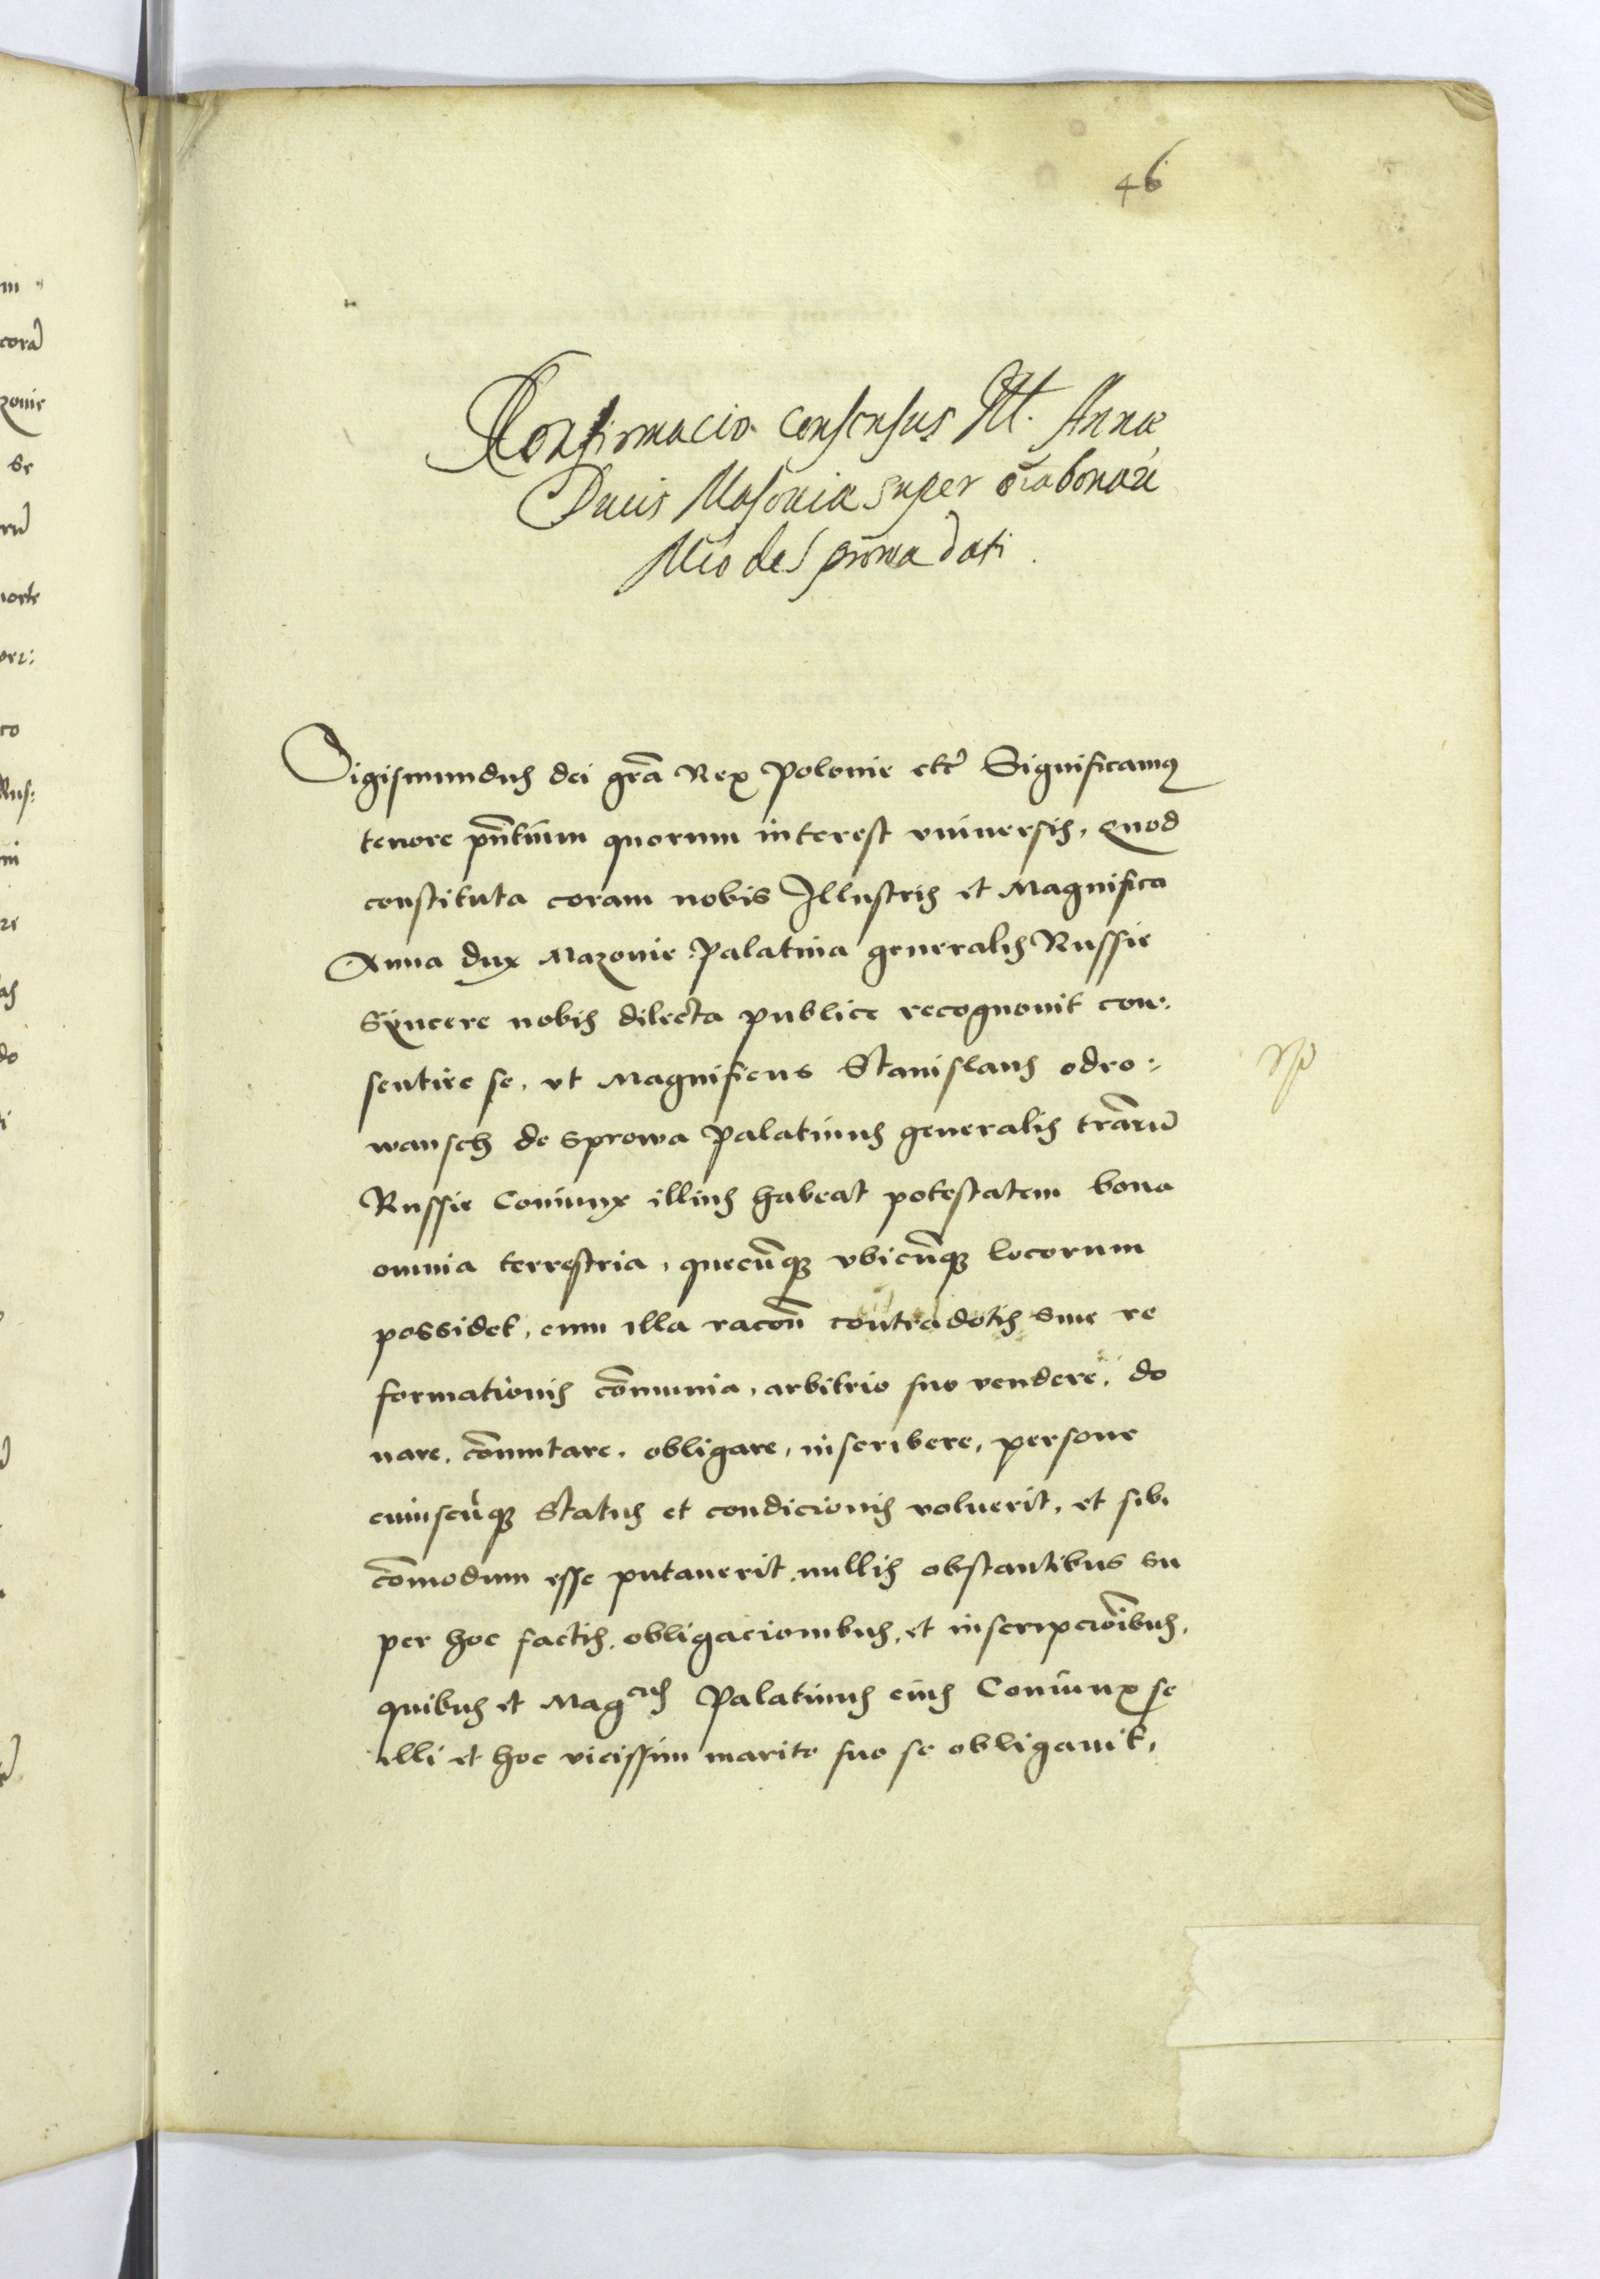 46
Confirmacio consensus Ill. Annæ
Ducis Masoviæ super oia bona
de Sprowa dati.
Sigismundus dei gra͞ Rex Polonie etc̃ Significamus
tenore pn͞tium quorum interest vniuersis, Quod
constituta coram nobis Illustris et Magnifica
Anna dux Mazouie Palatina generalis Russie
Syncere nobis dilecta publice recognouit con-
sentire se, vt Magnificus Stanislaus odro-
wansch de Sprowa Palatinus generalis tra͞rum
Russie Coniunx illius habeat potestatem bona
omnia terrestria, quecu͞que vbicu͞que locorum
possidet, cum illa raco͞n contradotis siue re
formationis co͞munia, arbitrio suo vendere, do
nare, co͞mutare, obligare, inscribere, persone
cuiuscu͞que Status et condicionis voluerit, et sibi
co͞modum esse putauerit, nullis obstantibus su
per hoc factis, obligacionibus, et inscripcio͞ibus,
quibus et Mag^cus Palatinus eius Coniunx se
illi et hec vicissim marito suo se obligauit,